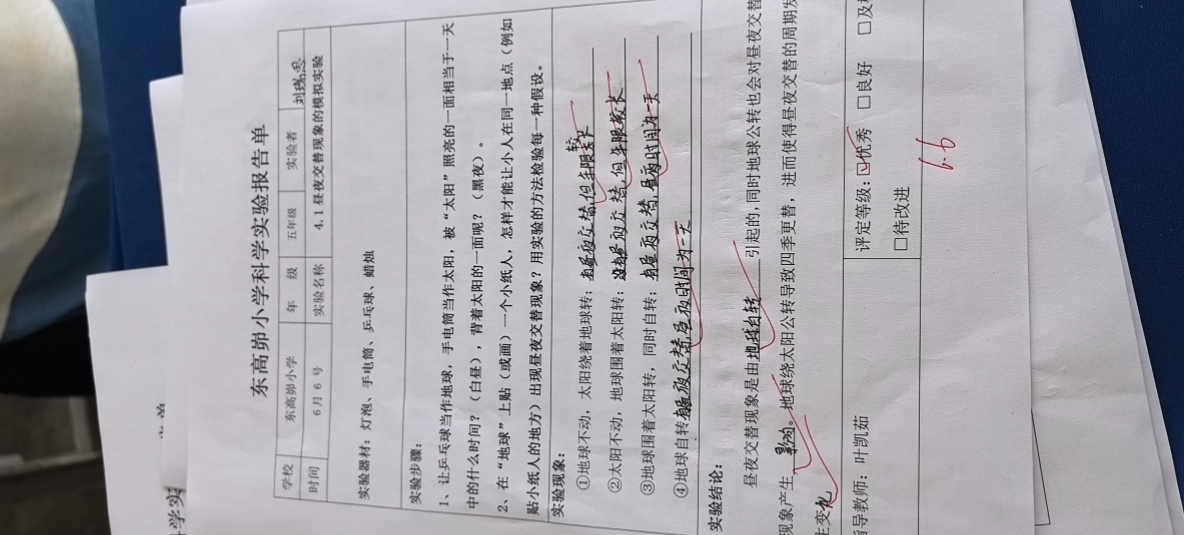 东高峁小学科学实验报告单
学校 东高峁小学 年 级 五年级 实验者
时间 6月6号 实验名称 4.1昼夜交替现象的模拟实验
实验器材：灯泡、手电筒、乒乓球、蜡烛
实验步骤：
1、让乒乓球当作地球，手电筒当作太阳，被“太阳”照亮的一面相当于一天
中的什么时间？（白昼），背着太阳的一面呢？（黑夜）。
2、在“地球”上贴（或画）一个小纸人，怎样才能让小人在同一地点（例如
贴小纸人的地方）出现昼夜交替现象？用实验的方法检验每一种假设。
实验现象：
①地球不动，太阳绕着地球转：有昼夜交替，但年限较长
②太阳不动，地球围着太阳转：昼夜交替，但年限较长
③地球围着太阳转，同时自转：有昼夜交替，昼夜时间为一天
④地球自转有昼夜交替，昼夜时间为一天
实验结论：
昼夜交替现象是由地球自转引起的，同时地球公转也会对昼夜交替
现象产生影响。地球绕太阳公转导致四季更替，进而使得昼夜交替的周期发
生变化
指导教师：叶凯茹 评定等级：☑优秀 □良好 □及
□待改进
6.6
科学实